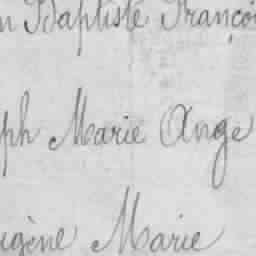 n Baptiste Françoi
ph Marie Ange
igène Marie